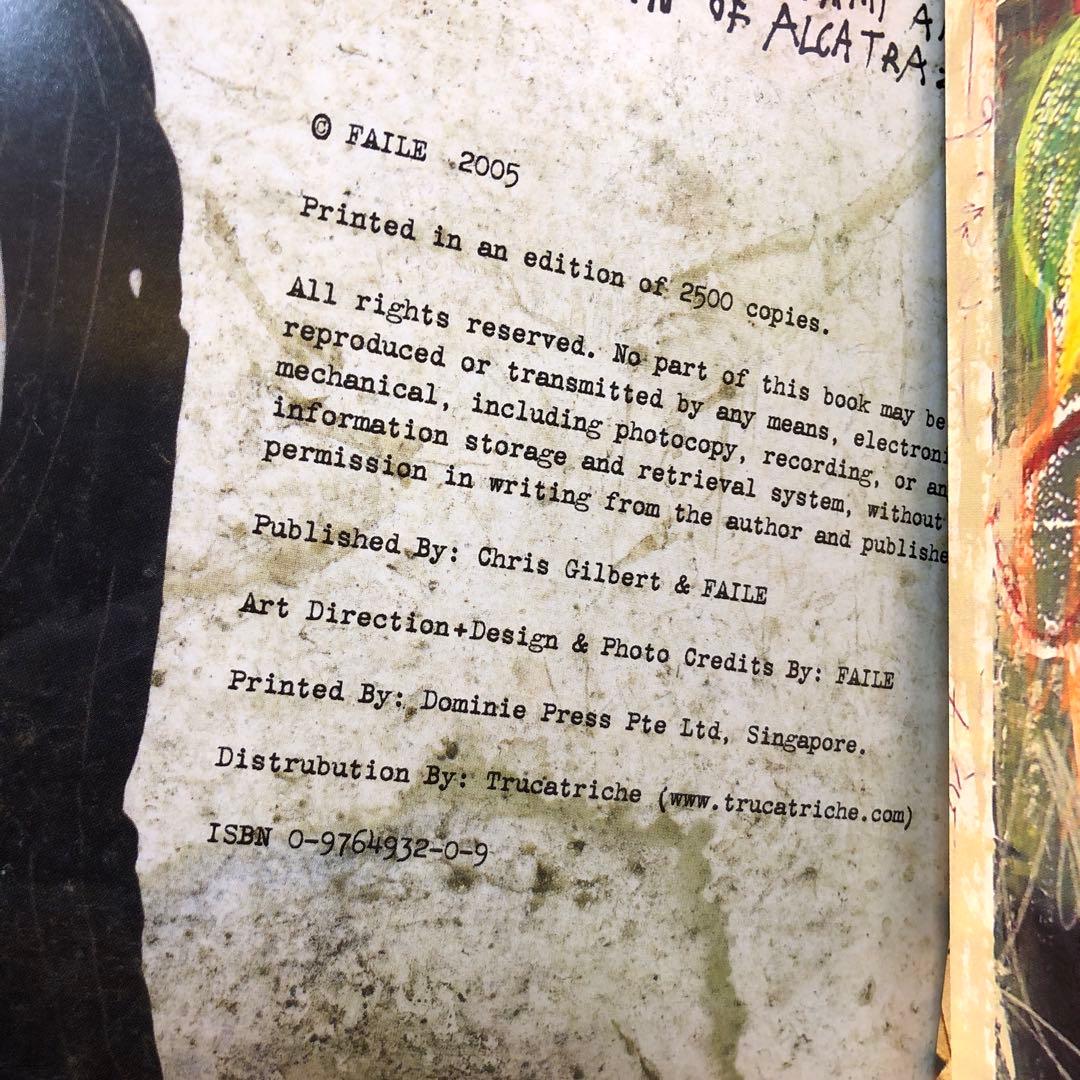 OF ALCATRA
© FAILE 2005
Printed in an edition of 2500 copies.
All rights reserved. No part of this book may be
reproduced or transmitted by any means, electroni
mechanical, including photocopy, recording, or an
information storage and retrieval system, without
permission in writing from the author and publishe
Published By: Chris Gilbert & FAILE
Art Direction+Design & Photo Credits By: FAILE
Printed By: Dominie Press Pte Ltd, Singapore.
Distrubution By: Trucatriche (www.trucatriche.com)
ISBN 0-9764932-0-9